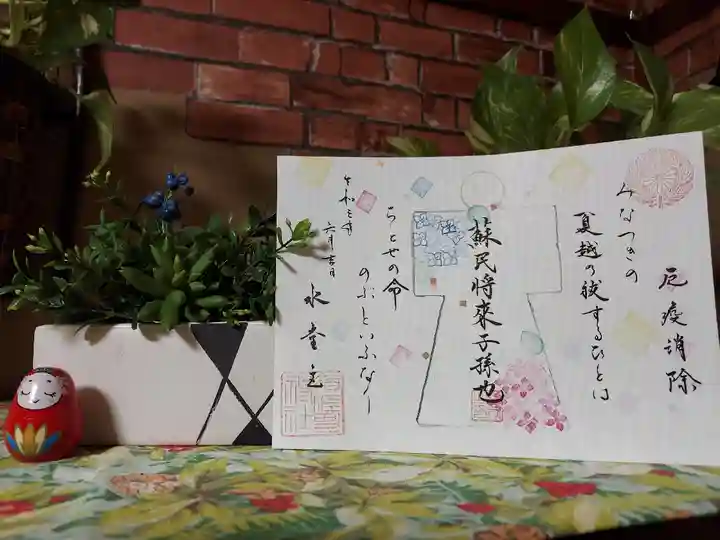 厄疫消除
みなつきの
夏越の祓するひとは
蘇民将来子孫也
ちとせの命
のぶといふなり
六月吉日